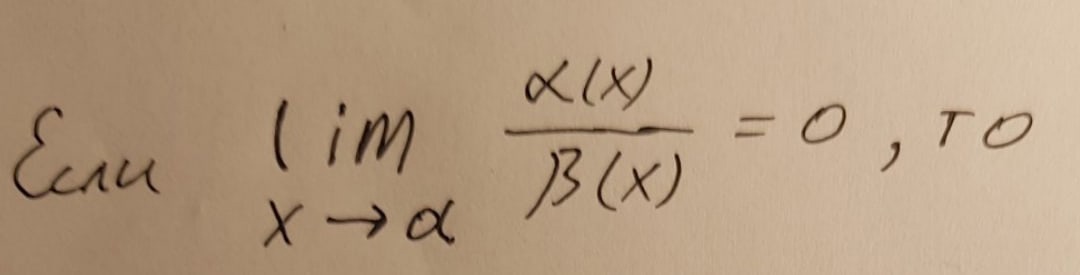 Если lim x→α α(x)/β(x) = 0, то